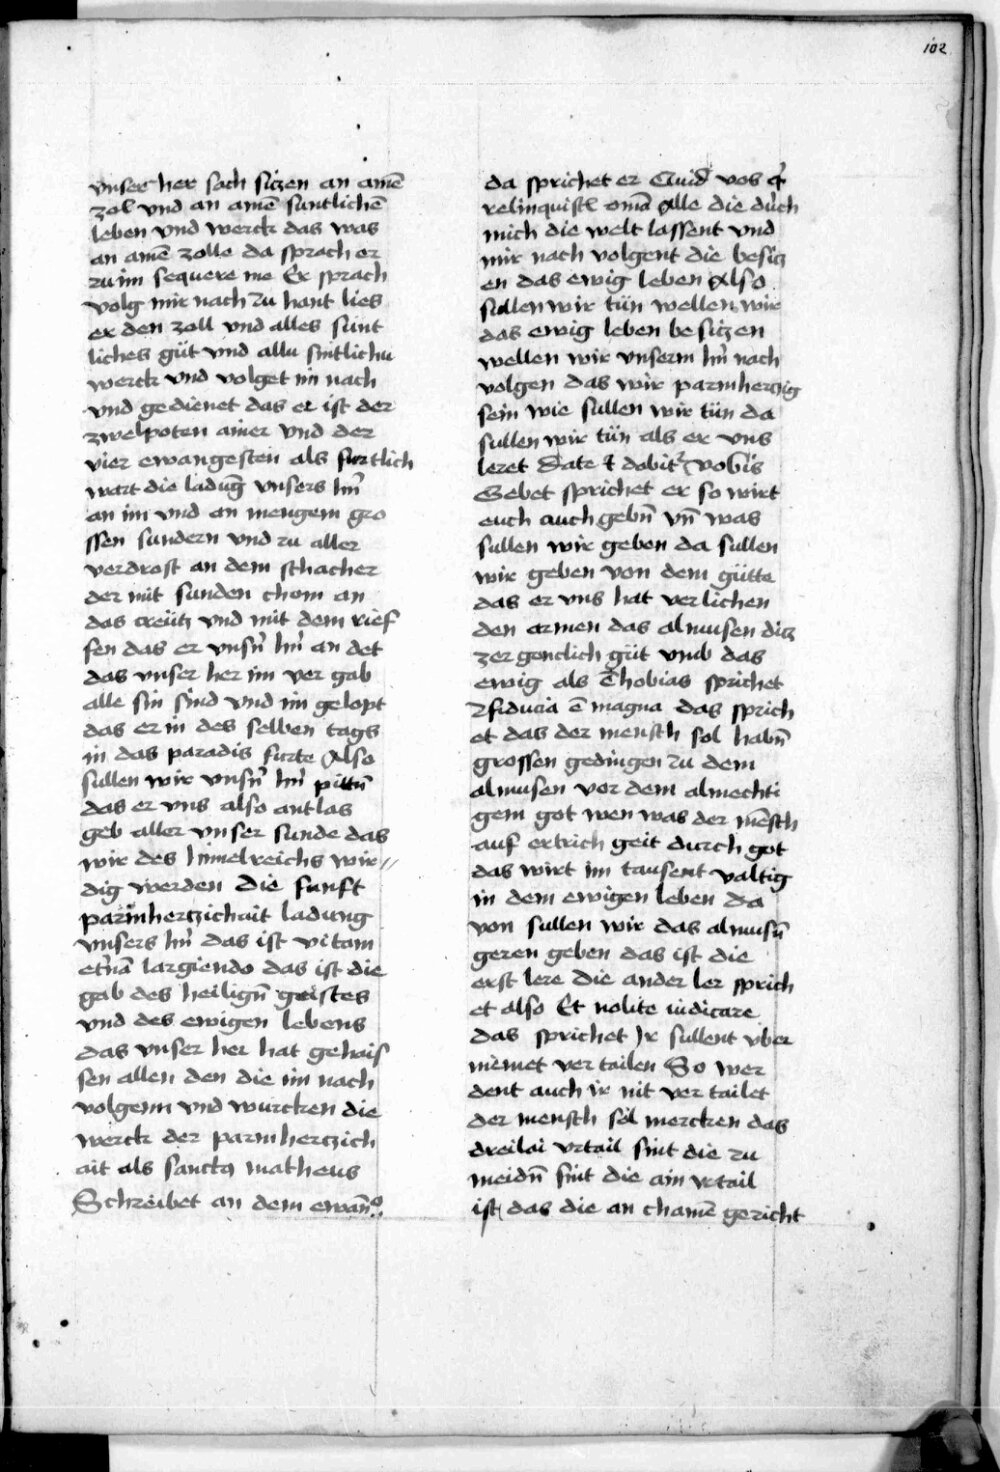 102
vnser her sach siczen an ainē
zol vnd an ainē suntlichē
leben vnd werck das was
an ainē zolle da sprach er
zu im sequere me Er sprach
volg mir nach Zu hant lies
er den zoll vnd alles sünt
liches güt vnd allu sintlichu
werck vnd volget im nach
vnd gedienet das er ist der
zwelpoten ainer vnd der
vier ewangesten als furtlich
wart die ladūg vnsers hn̄
an im vnd an mengem gro
ssen sundern vnd zu aller
verdrost an dem schacher
der mit sunden chom an
das creütz vnd mit dem rief
fen das er vnsn̄ hn̄ an det
das vnser her im ver gab
alle sin sind vnd im gelopt
das er in des selben tags
in das paradis furte Also
sullen wir vnsn̄ hn̄ pittn̄
das er vns also antlas
geb aller vnser sunde das
wir des himelreichs wir//
dig werden Die funft
parmhertzichait ladung
vnsers hn̄ das ist vitam
et̄nā largiendo das ist die
gab des heilign̄ geistes
vnd des ewigen lebens
das vnser her hat gehais
sen allen den die im nach
volgenn vnd wurcken die
werck der parmhertzich
ait als sanctꝰ matheus
Schreibet an dem ewan̄º
da sprichet er Quid vos q̄
relinquistꝭ omā Alle die dúch
mich die welt lassent vnd
mir nach volgent die besitz
en das ewig leben Also
sullen wir tün wellen wir
das ewig leben besitzen
wellen wir vnserm hn̄ nach
volgen das wir parmhertzig
sein wie sullen wir tün da
sullen wir tün als er vns
leret Date ⁊ dabit᷑ vobis
Gebet sprichet er so wirt
euch auch gebn̄ vn̄ was
sullen wir geben da sullen
wir geben von dem gütte
das er vns hat verlichen
den armen das almusen ditz
zergenclich güt vmb das
ewig als Thobias sprichet
fiducia ē magna das sprich
et das der mensch sol habn̄
grossen gedingen zu dem
almusen vor dem almechti
gem got wen was der mēsch
auf ertrich geit durch got
das wirt im tausent valtig
in dem ewigen leben da
von sullen wir das almusn̄
geren geben das ist die
erst lere die ander ler sprich
et also Et nolite iudicare
das sprichet Ir sullent vber
niemet ver tailen So wer
dent auch ir nit ver tailet
der mensch sol mercken das
dreilai vrtail sint die zu
meidn̄ sint die ain vrtail
ist das die an chamē gericht